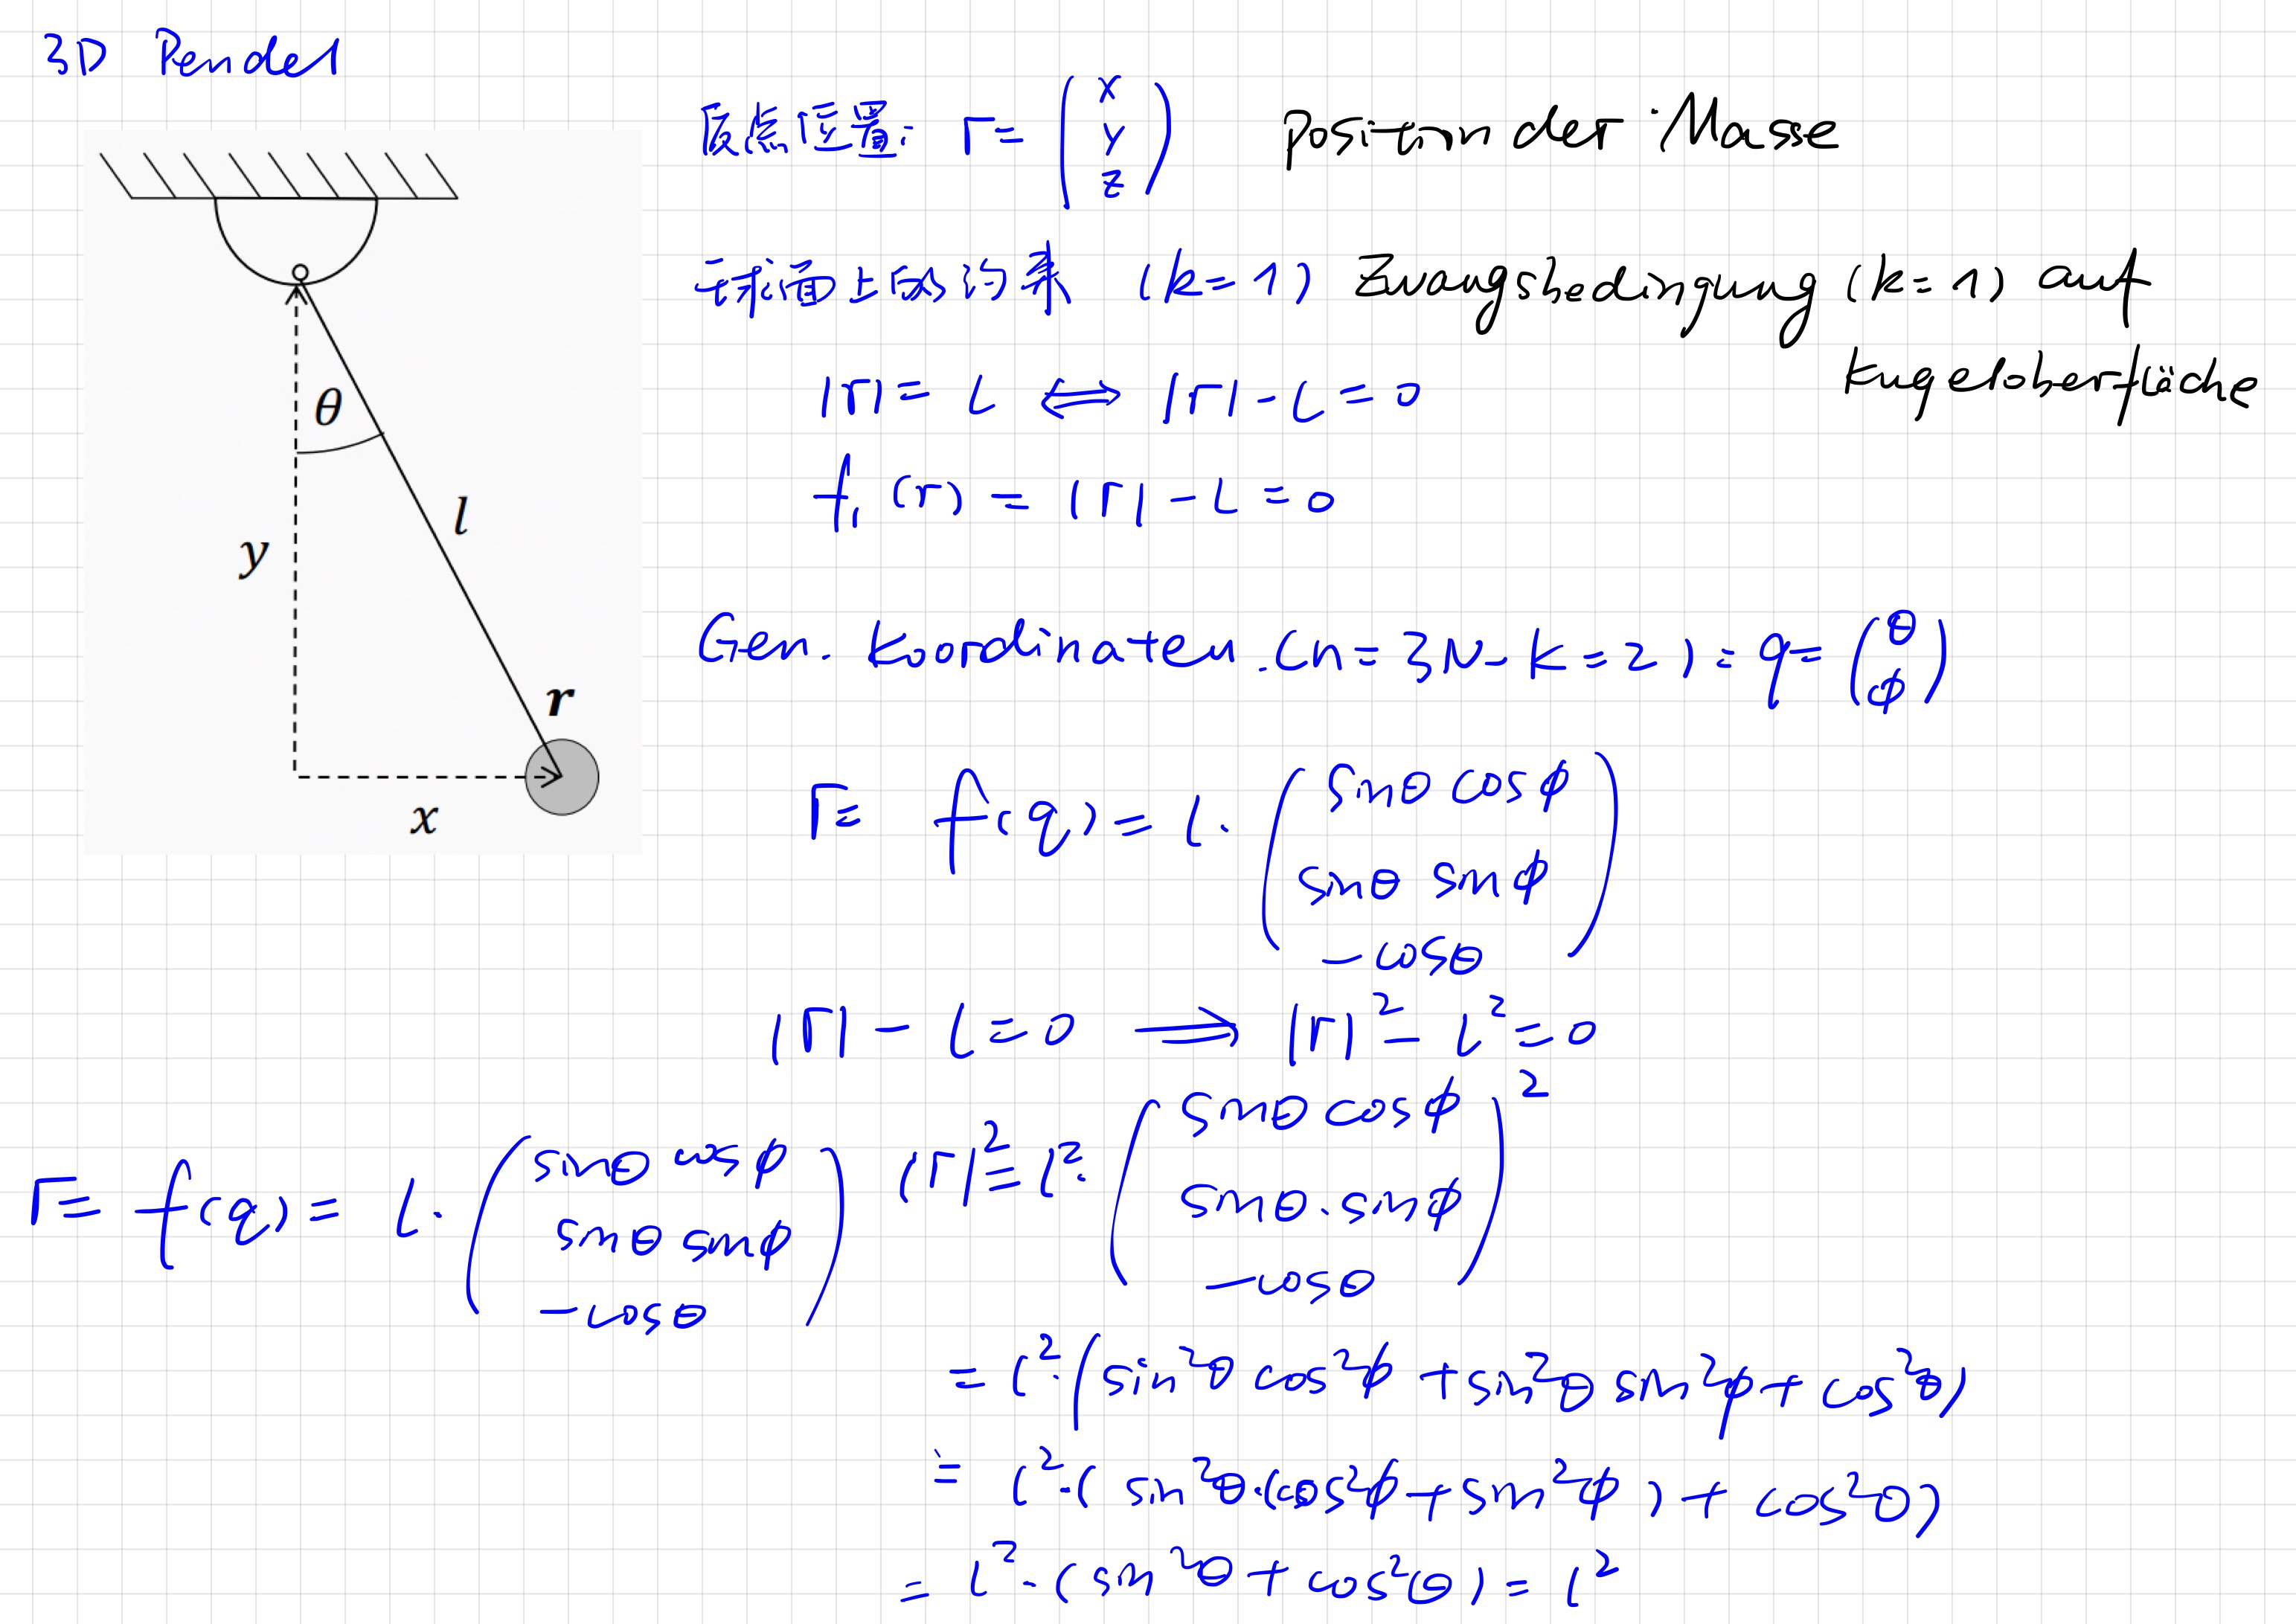 3D Pendel
质点位置: r = (x y z) Position der Masse
于球面上的约束 (k=1) Zwangsbedingung (k=1) auf
Kugeloberfläche
|r| = l ⟺ |r| - l = 0
f₁(r) = |r| - l = 0
θ
l
y
r
x
Gen. Koordinaten. (n = 3N - k = 2): q = (θ ϕ)
r = f(q) = l · (sinθ cosϕ
sinθ sinϕ
-cosθ)
|r| - l = 0 ⟹ |r|² - l² = 0
r = f(q) = l · (sinθ cosϕ
sinθ sinϕ
-cosθ)
|r|² = l² · (sinθ cosϕ
sinθ · sinϕ
-cosθ)²
= l² · (sin²θ cos²ϕ + sin²θ sin²ϕ + cos²θ)
= l² · (sin²θ · (cos²ϕ + sin²ϕ) + cos²θ)
= l² · (sin²θ + cos²(θ) = l²